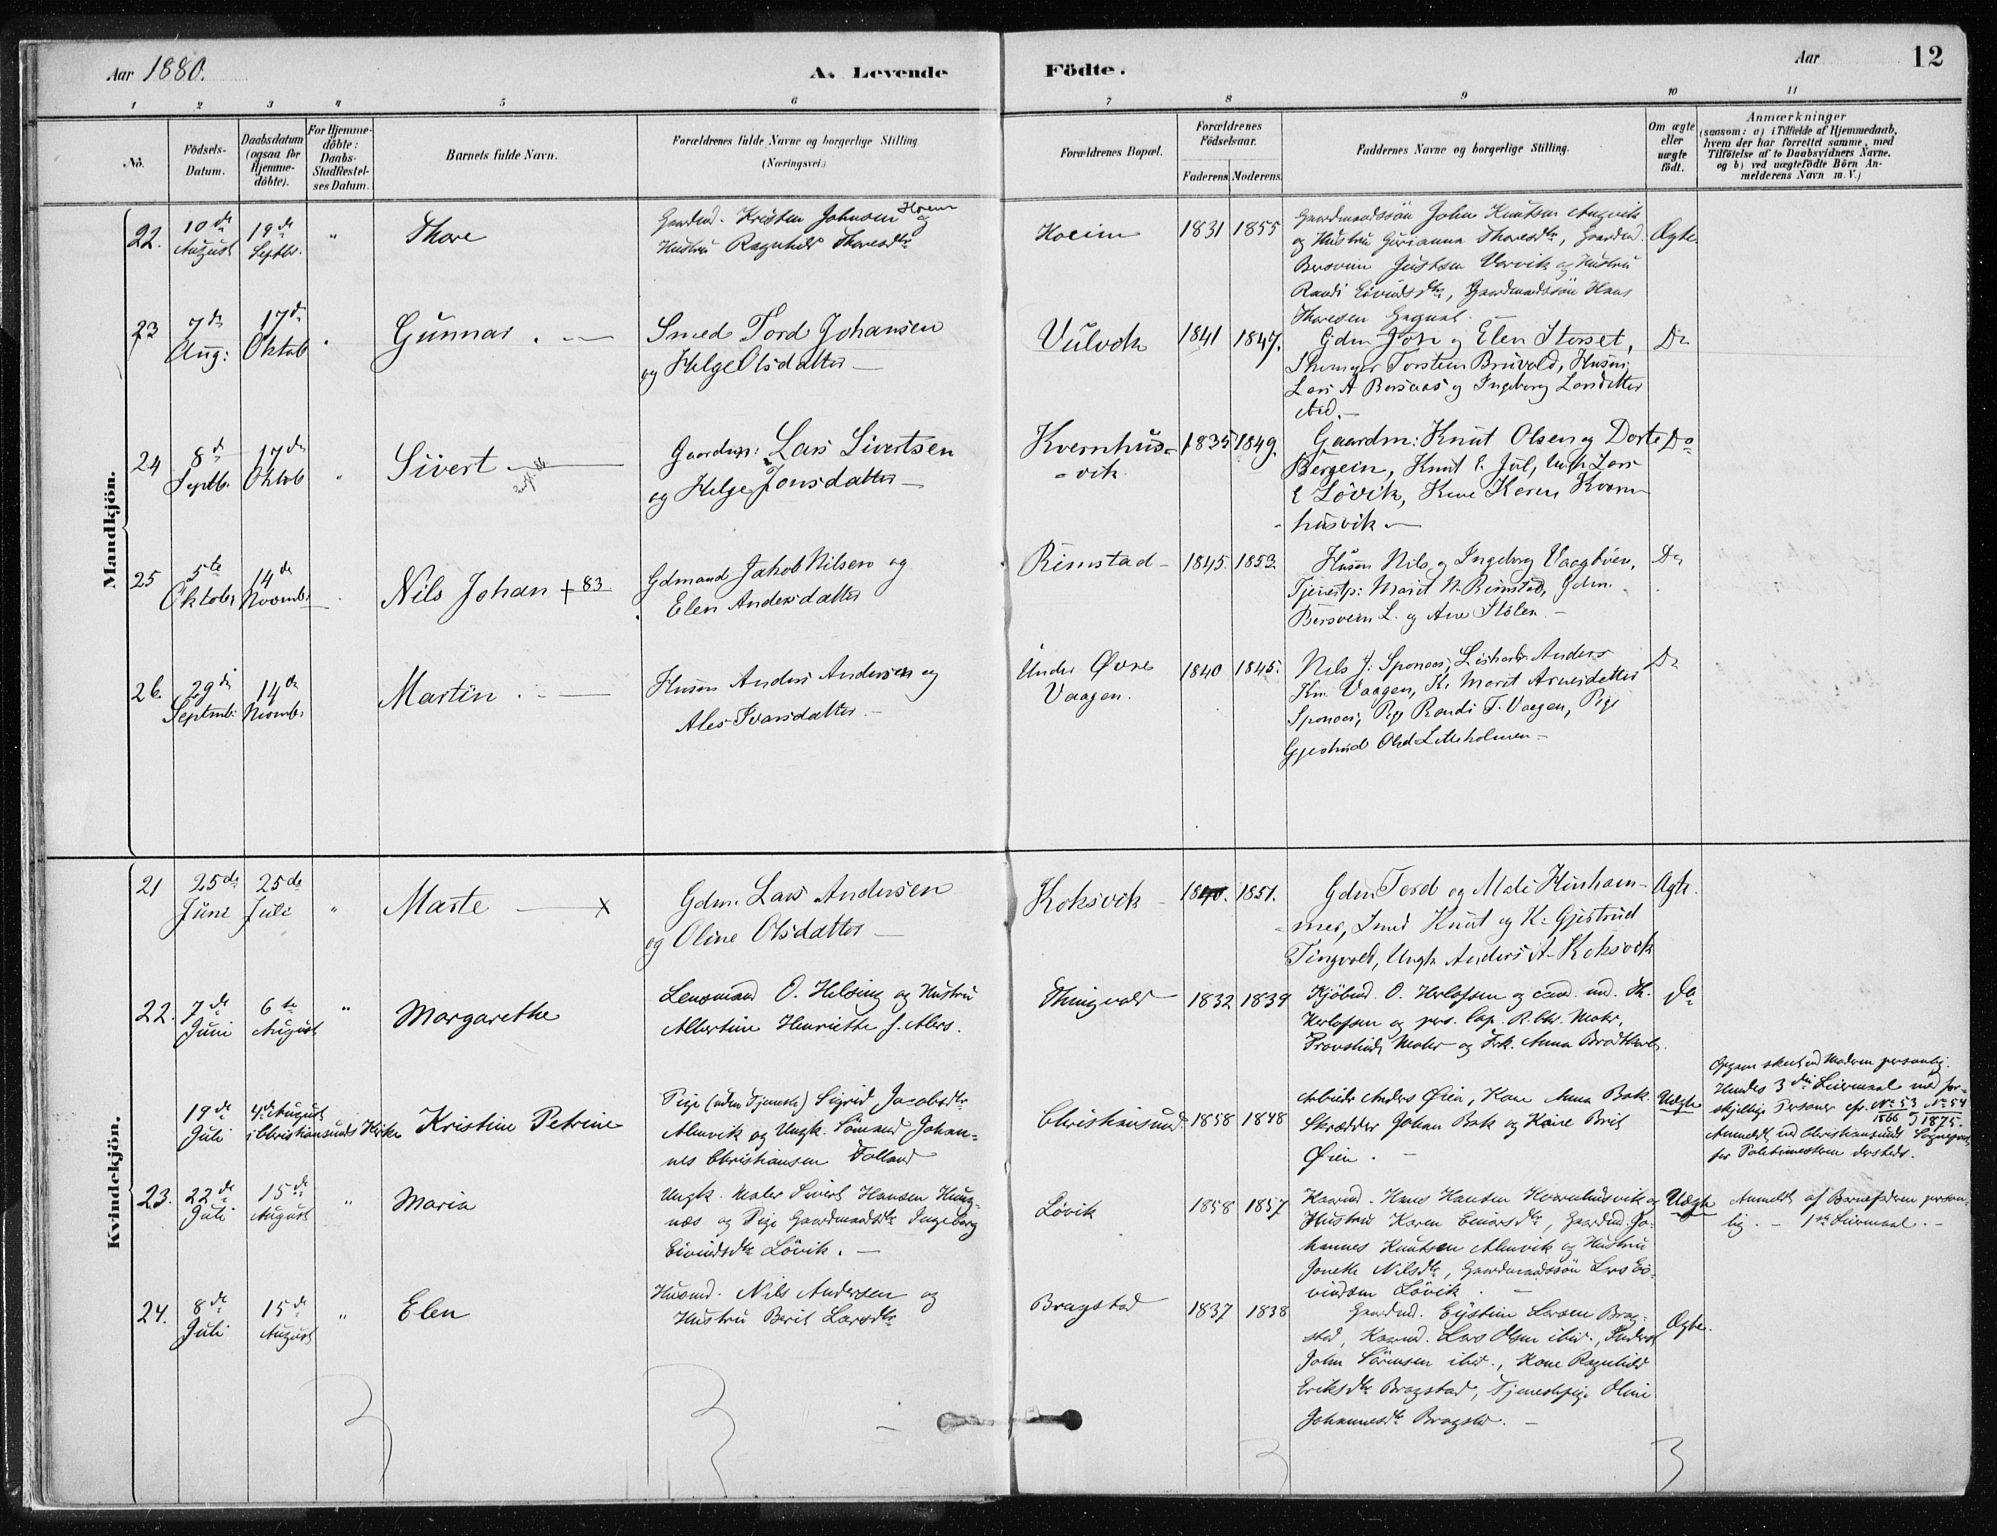 Aar 1880.
A. Levende
Födte.
Aar
12
1 2 3 4 5 6 7 8 9 10 11
No.
Födsels-Datum.
Daabsdatum (ogsaa for Hjemme-döbte).
For Hjemme-döbte: Daabs-Stadfæstel-ses Datum.
Barnets fulde Navn.
Forældrenes fulde Navne og borgerlige Stilling (Næringsvei.)
Forældrenes Bopæl.
Forældrenes Födselsaar.
Faderens. Moderens.
Faddernes Navne og borgerlige Stilling.
Om ægte eller uægte födt.
Anmærkninger
(saasom: a) i Tilfælde af Hjemmedaab,
hvem der har forrettet samme, med
Tilföielse af to Daabsvidners Navne,
og b) ved uægtefödte Börn An-
melderens Navn m. V.)
Mandkjön.
22. 10de August 19de Septbr. " Thore
Gaardmd. Kristen Johnsen Hoem og
Hustru Ragnhild Thoresdtr
Hoeim 1831 1855
Gaardmandssön John Knutsen Angvik
og Hustru Gurianna Thoresdtr, Gaardmd.
Bersvein Justsen Vorvik og Hustru
Randi Eivindsdtr, Gaardmandssön Hans
Thoresen
Ægte
23 7de Aug: 17de Oktob Gunnar. —
Smed Tord Johansen
og Helge Olsdatter —
Vulvik 1841 1847.
Gdm Jon og Elen Storset,
Torstein Bruvold, Husm:
Lars A Bersaas og Ingeborg Larsdatter
ibid. —
Do
24 8de Septb. 17de Oktob " Sivert —
Gaardm: Lars Sivertsen
og Helge Jonsdatter —
Kvernhus-
-vik. 1835 1849.
Gaardm: Knut Olsen og Dorte
Bergein, Knut E. Jul, Ungk Lars
E Lövik, Kone Karen Kvern-
husvik —
Do
25 5te Oktobr 14de Novembr Nils Johan + 83
Gdmand Jakob Nilsen og
Elen Andersdatter
Rimstad — 1845. 1853.
Husm Nils og Ingeborg Vaagböen,
Tjenestp: Marit N. Rimstad, Gdm.
Bersvein L. og Ane Stölen —
Do
26. 29de Septmb: 14de Novmbr Martin. —
Husm Anders Andersen og
Ales Ivarsdatter —
Under Övre
Vaagen. 1840 1845.
Nils J. Sponaas, Anders
Kn. Vaagen, K. Marit Arnesdatter
Sponaas, Pige Randi T. Vaagen, Pige
Gjertrud Olsd Lilleholmen —
Do
Kvindekjön.
21 25de Juni 25de Juli " Marte — x
Gdm. Lars Andersen
og Oline Olsdatter —
Koksvik — 1840. 1851.
Gdm Tord og Mali Hinham-
mer, Smed Knut og K: Gjertrud
Tingvold, Ungk Anders A. Koksvik
Ægte.
22. 7de Juni 6te August " Margarethe
Lensmand O. Helsing og Hustru
Albertine Henriette f. Alers.
Thingvold 1832 1839
Kjöbmd. O. Herlofsen og cand. med. Th.
Herlofsen og pers. Cap. R. Chr. Mohr,
Provstinde Mohr og Frk. Anna Brodtkorb.
do.
19de Juli 4de August i Christiansunds Kirke Kristine Petrine
Pige (uden Tjeneste) Sigrid Jacobsdtr
Almvik og Ungk. Sömand Johan-
nes Christiansen Folland
Christiansund 1858 1848
Arbeider Anders Öien, Kone Anna Bak
Skrædder Johan Bak og Kone Brit
Öien. —
Uægte
Opgave skeet ved Moderen personlig.
Hendes 3die Leiermaal med for-
skjellige Personer cfr. No 53 1866 og No 54 1875.
Anmeldt ved Christiansunds Sognepr.
for Politimesteren dersteds.
23. 22de Juli 15de August " Maria
Ungk. Maler Sivert Hansen
næs og Pige Gaardmandsdtr Ingeborg
Eivindsdtr Lövik. —
Lövik 1858 1857
Kaarmd. Hans Hansen Kvernhusvik og
Hustru Karen Einarsdtr, Gaardmd. Jo-
hannes Knutsen Almvik og Hustru
Jonette Nilsdtr, Gaardmandssön Lars Ei-
vindsen Lövik. —
Uægte
Anmeldt af Barnefaderen person-
lig. — 1ste Leiermaal. —
24. 8de Juli 15de August " Elen
Husmd. Nils Andersen og
Hustru Berit Larsdtr
Bragstad 1837 1838
Gaardmd. Eystein Larsen Brag-
stad, Kaarmd. Lars Olsen ibid.,
John Sörensen ibid., Kone Ragnhild
Eriksdtr Bragstad, Tjenestepige Oline
Johannesdtr Bragstad. —
Ægte.